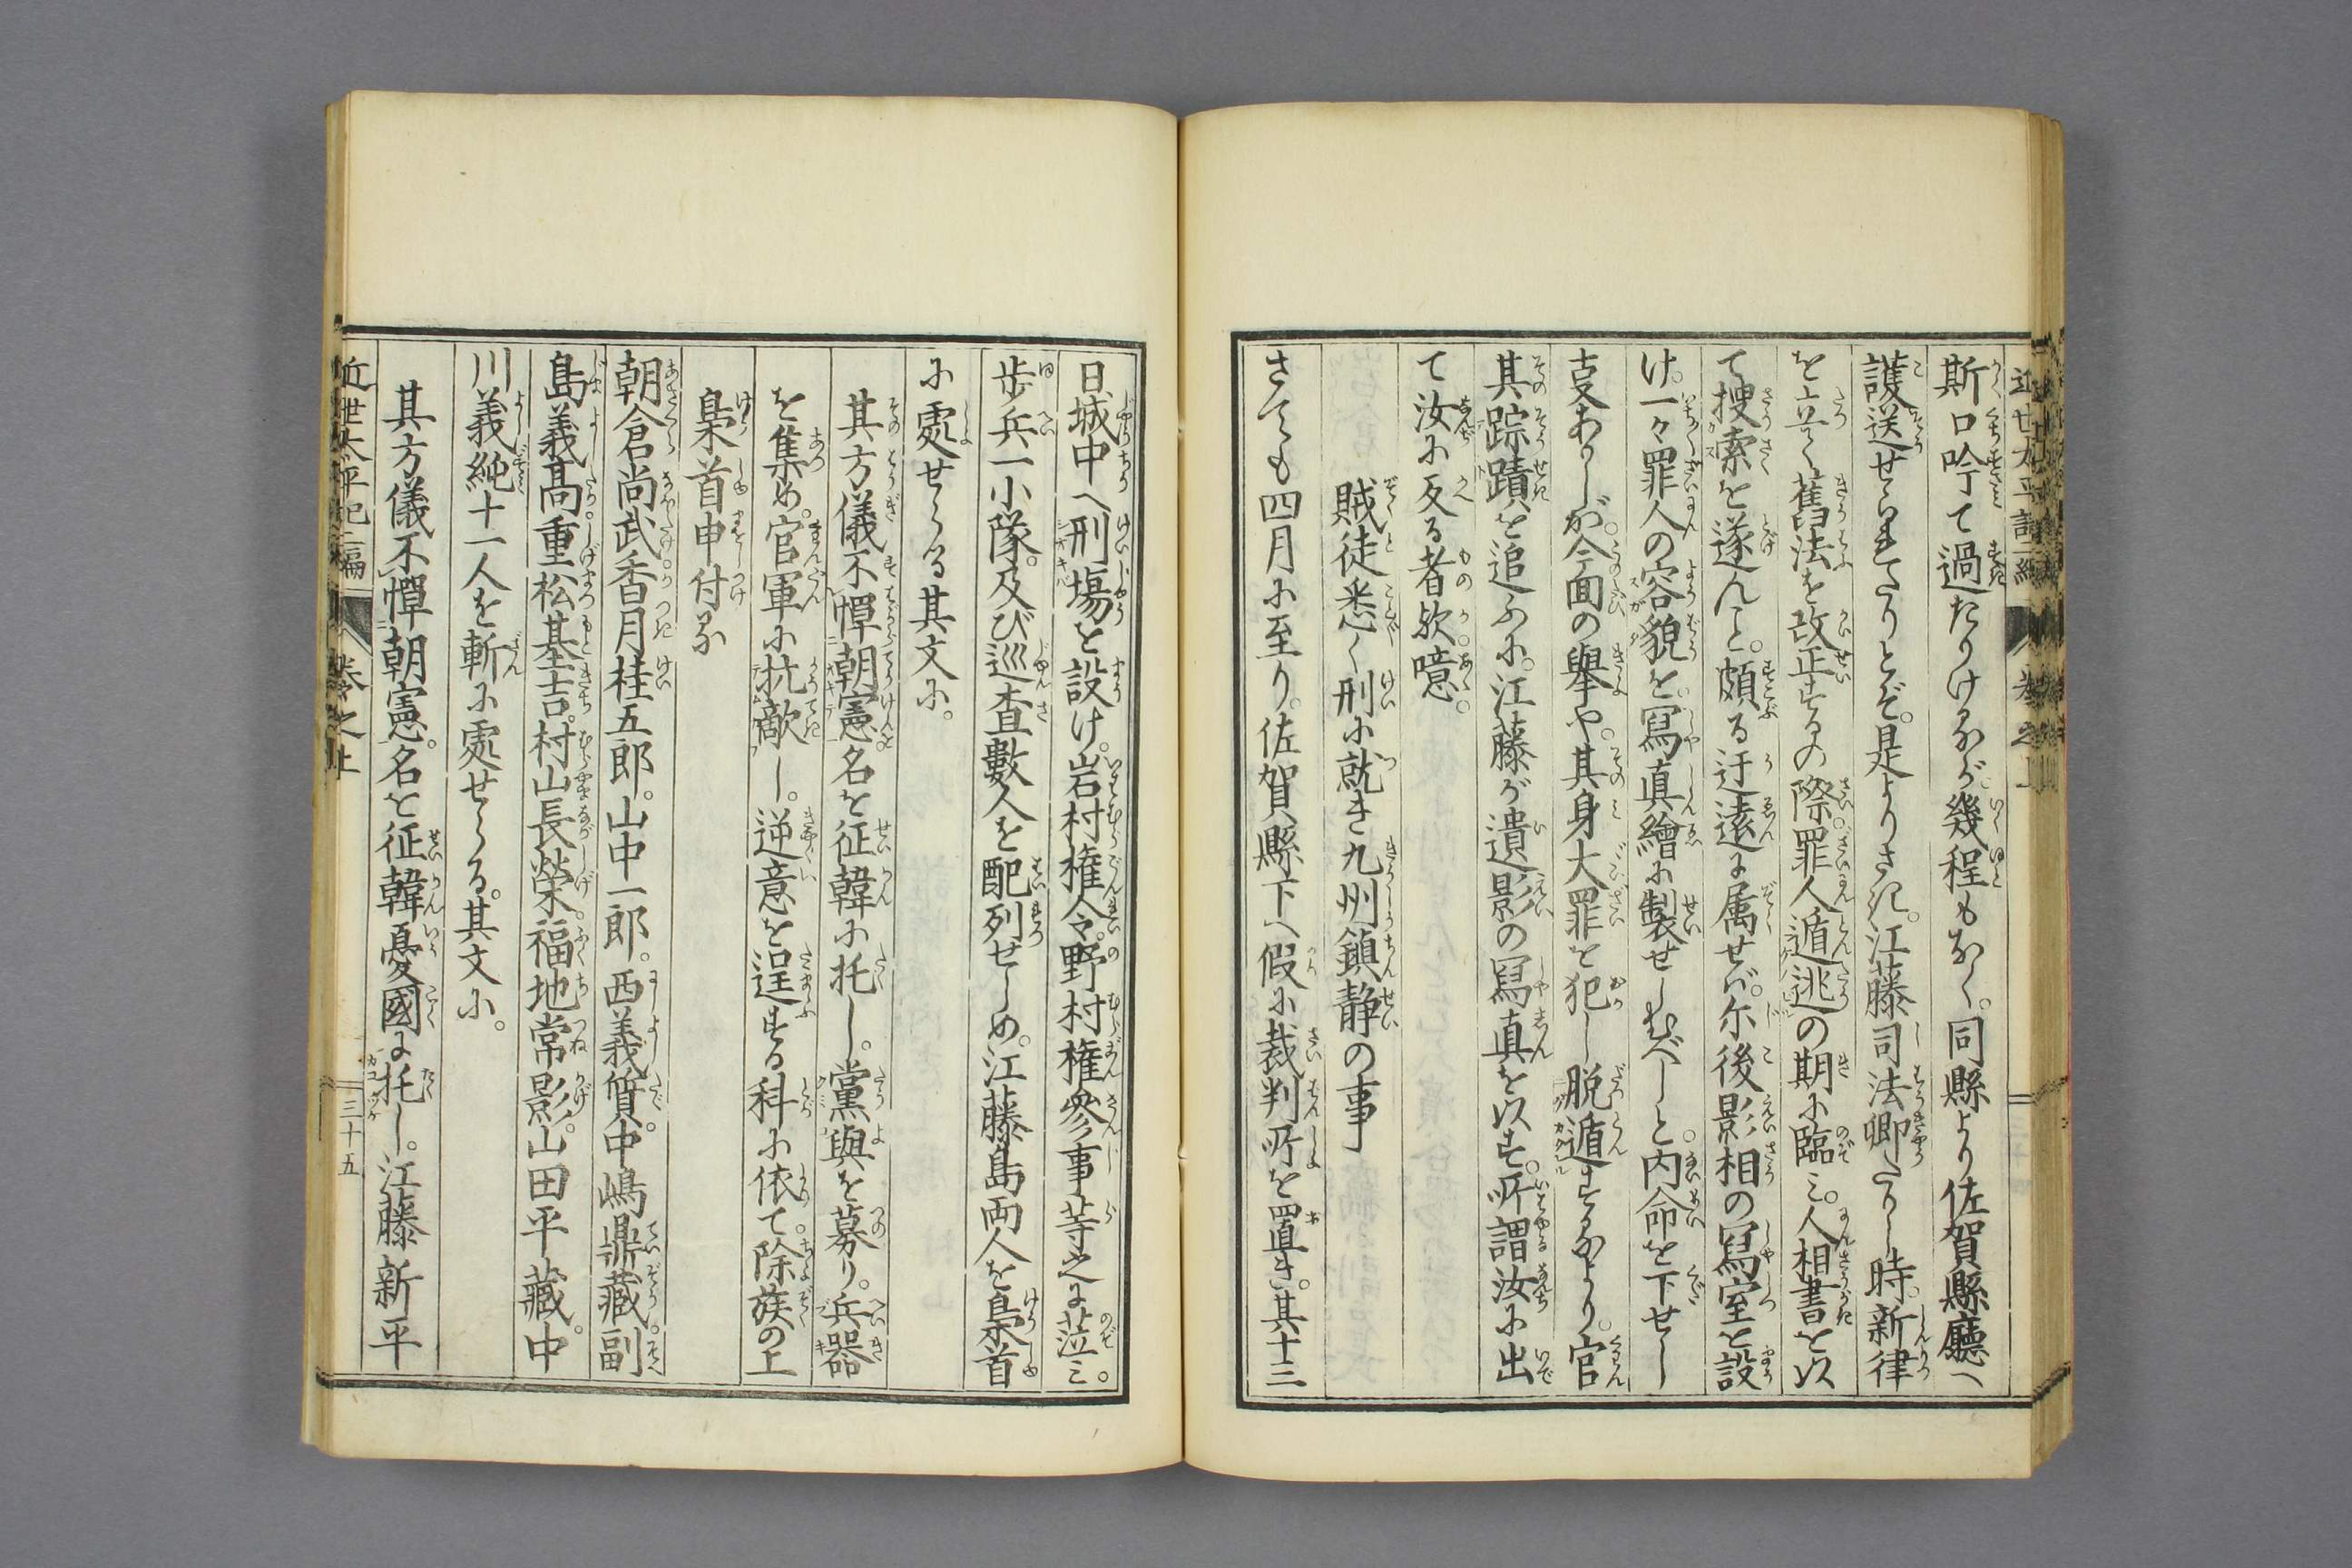 斯口吟て過たりけるが幾程もなく。同縣より佐賀縣廳へ
護送せられたりとぞ。是よりさき。江藤司法卿たりし時。新律
を立て舊法を改正するの際。罪人遁逃の期に臨み。人相書を以
て捜索を遂んと。頗る迂遠に属せバ。尓後影相の寫室を設
け。一々罪人の容貌を。寫真繪に製せしむべしと。内命を下せし
支ありしが。今面の擧や。其身大罪を犯し脱遁するなより。官
其踪蹟を追ふに。江藤が遺影の寫真を以す。所謂汝に出
て汝に反る者欤。噫。
賊徒悉く刑に就き九州鎮静の事
さても四月に至り。佐賀縣下へ假に裁判所を置き。其十三
日城中へ刑場を設け。岩村権令。野村権參事等之に莅ミ。
歩兵一小隊。及び巡査數人を配列せしめ。江藤島両人を梟首
に處せらる其文に。
其方儀不憚朝憲。名を征韓に托し。黨與を募り。兵器
を集め。官軍に抗敵し。逆意を逞する科に依て。除族の上
梟首申付る
朝倉尚武。香月桂五郎。山中一郎。西義質。中嶋鼎藏。副
島義髙。重松基吉。村山長榮。福地常影。山田平藏。中
川義純十一人を斬に處せらる。其文に。
其方儀不憚朝憲。名を征韓憂國に托し。江藤新平
近世太平記二編
卷之上
三十五